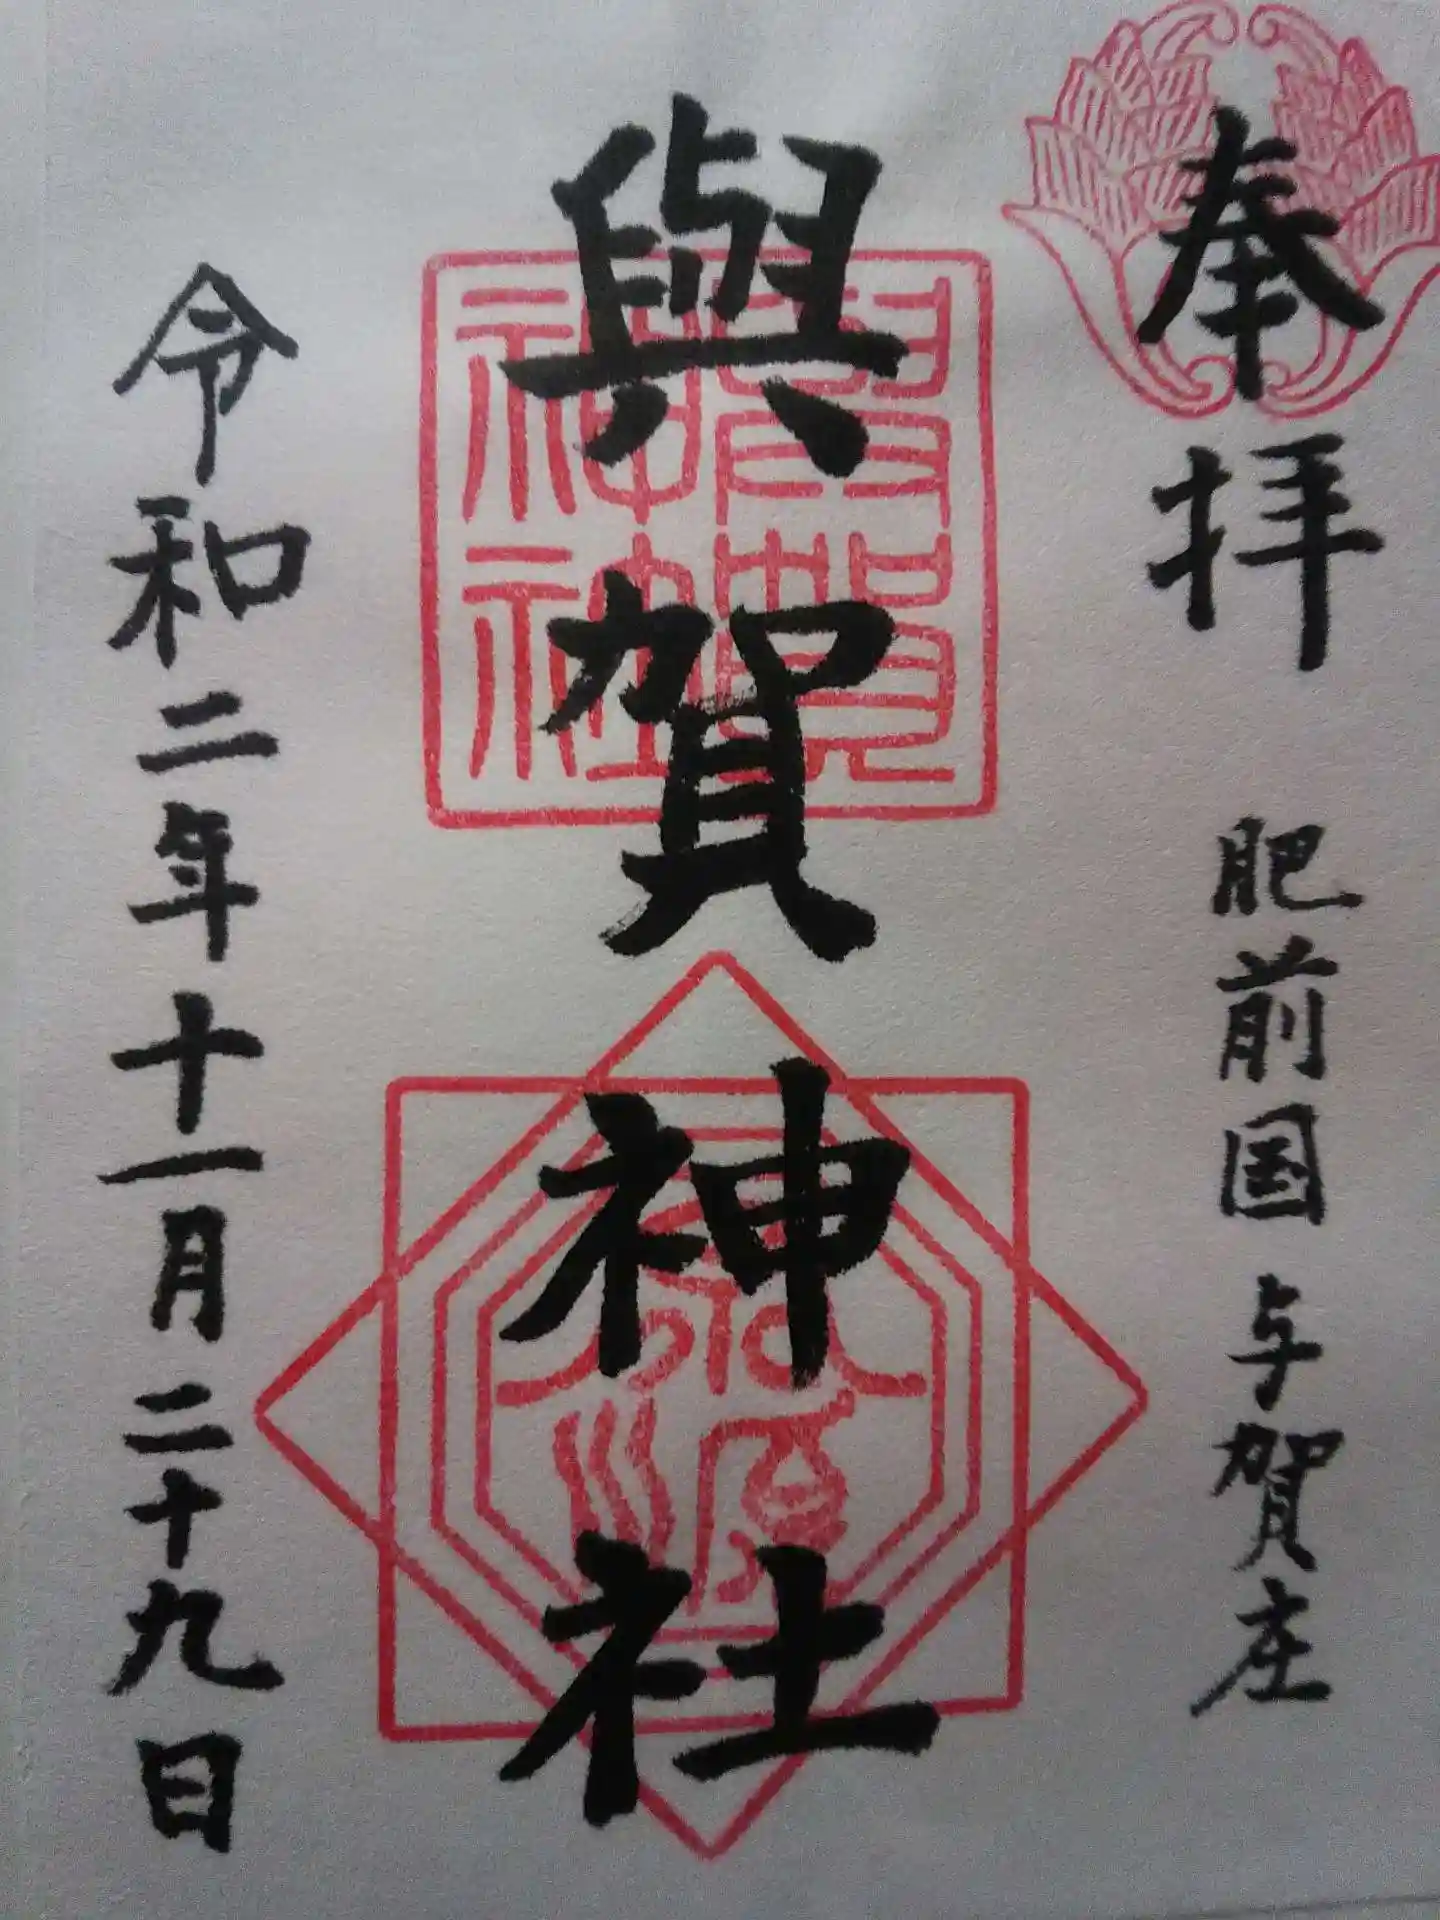 奉拝
肥前国 与賀庄
與賀神社
與賀神社
令和二年十一月二十九日